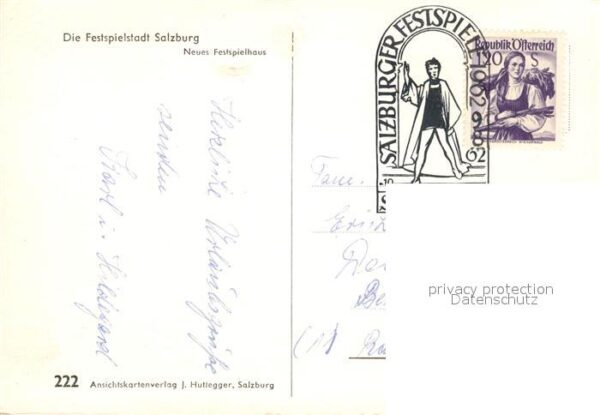 Die Festspielstadt Salzburg
Neues Festspielhaus
Herzliche Urlaubsgrüße
senden
Karl u. Hildegard
222 Ansichtskartenverlag J. Huttegger, Salzburg
SALZBURGER FESTSPIELE 1962
62
Republik Österreich
1.20 S
Fam.
privacy protection
Datenschutz